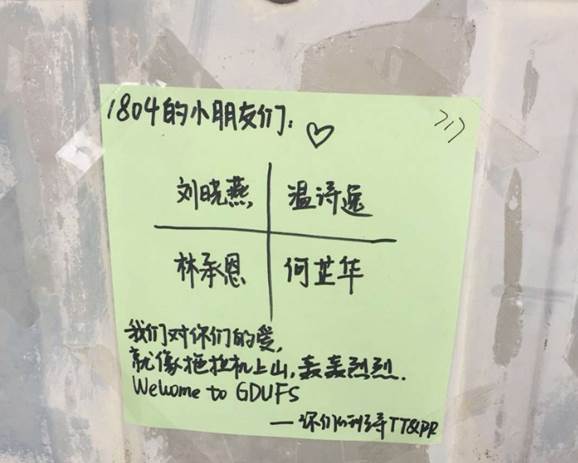 1804的小朋友们:
717
刘晓燕, 温诗逸
林承恩 何芷华
我们对你们的爱,
就像拖拉机上山,轰轰烈烈.
Welcome to GDUFS
——你们的 TT&PR